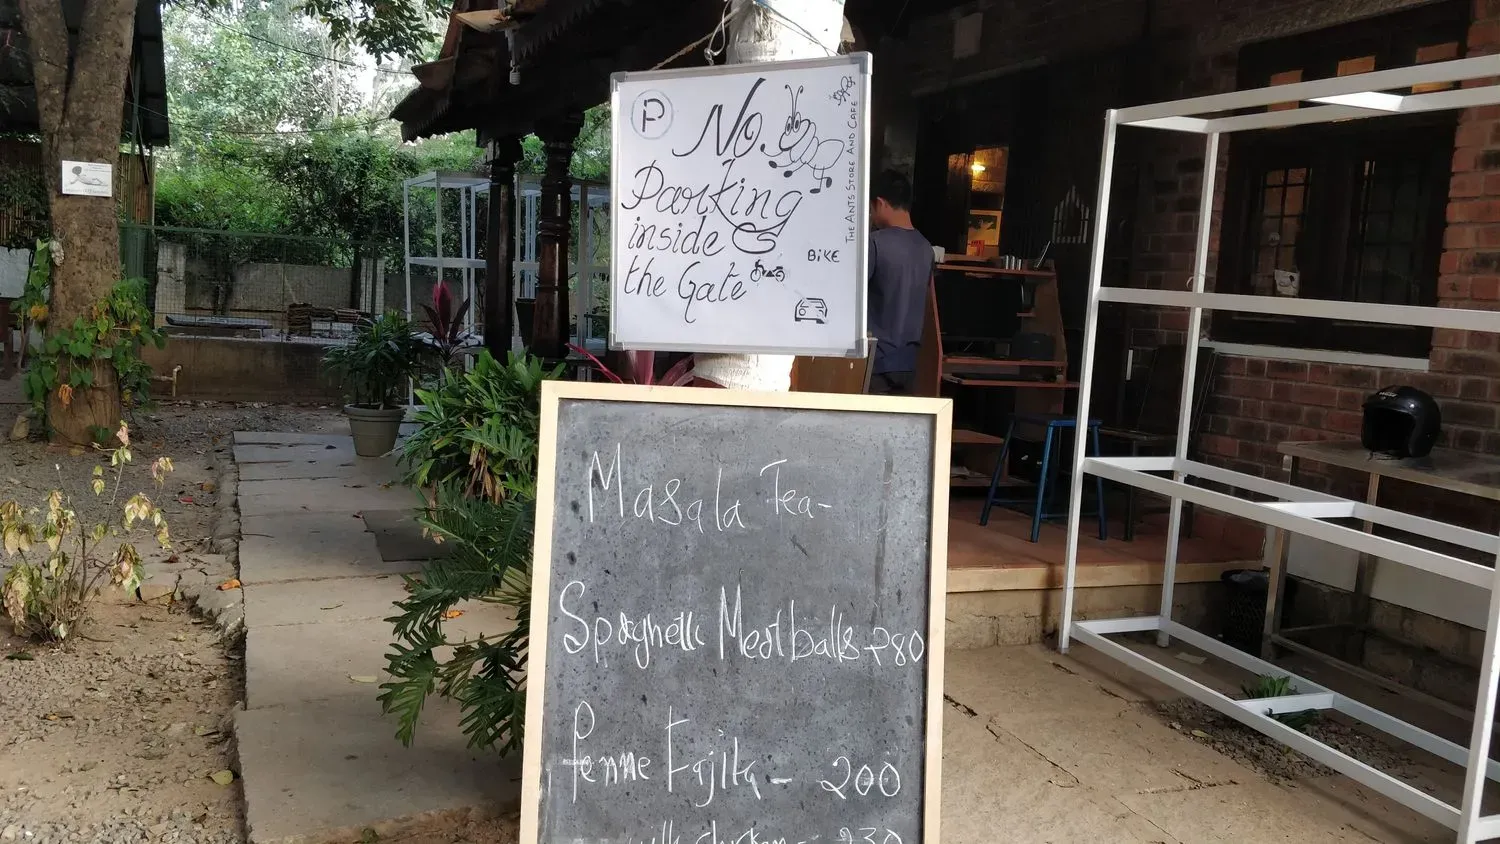 P
No
Parking
inside
the Gate
BiKE
THE ANTS STORE AND CAFE
Masala Tea-
Spaghetti Meatballs-280
Penne Fajita - 200
with chicken - 230